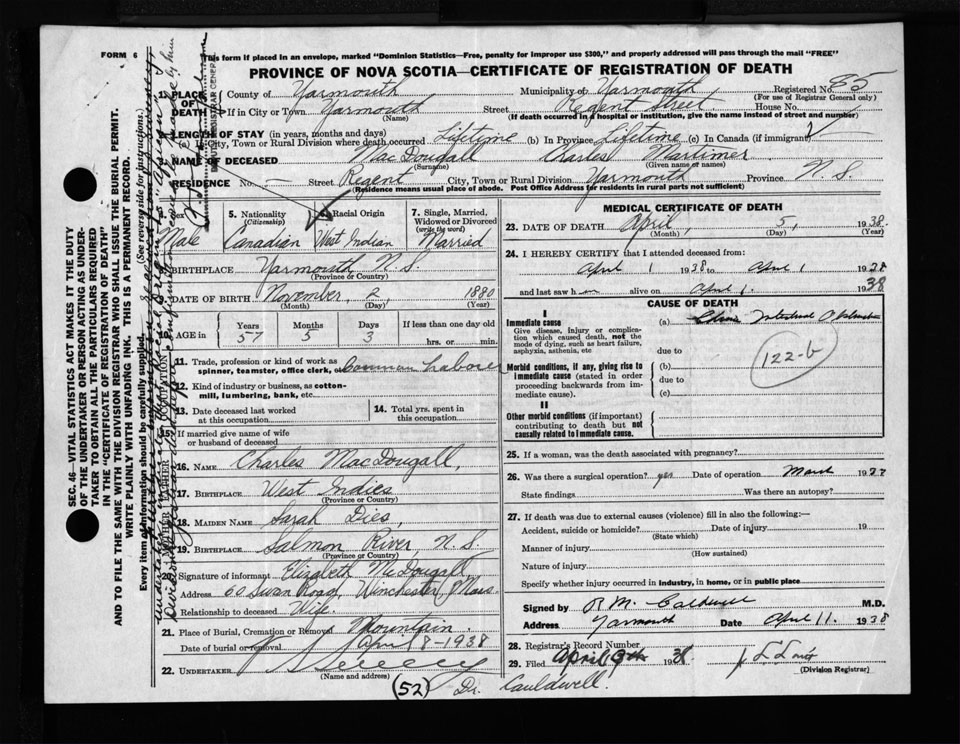 FORM 6
This form if placed in an envelope, marked "Dominion Statistics—Free, penalty for improper use $300," and properly addressed will pass through the mail "FREE"
PROVINCE OF NOVA SCOTIA—CERTIFICATE OF REGISTRATION OF DEATH
Registered No. 85
(For use of Registrar General only)
1. PLACE OF DEATH
County of Yarmouth Municipality of Yarmouth
If in City or Town Yarmouth Street Regent Street House No.
(Name) (If death occurred in a hospital or institution, give the name instead of street and number)
LENGTH OF STAY (in years, months and days)
City, Town or Rural Division where death occurred Lifetime (b) In Province Lifetime (c) In Canada (if immigrant)
NAME OF DECEASED MacDougall Charles Mortimer
(Surname) (Given name or names)
RESIDENCE No. — Street Regent City, Town or Rural Division Yarmouth Province N. S.
(Residence means usual place of abode. Post Office Address for residents in rural parts not sufficient)
DEPUTY REGISTRAR GENERAL
5. Nationality (Citizenship) 6. Racial Origin 7. Single, Married, Widowed or Divorced (write the word)
Male Canadian West Indian Married
BIRTHPLACE Yarmouth N. S.
(Province or Country)
DATE OF BIRTH November, 2, 1880
(Month) (Day) (Year)
AGE in Years Months Days If less than one day old
57 5 3 hrs. or min.
11. Trade, profession or kind of work as spinner, teamster, office clerk, etc. Common Laborer
12. Kind of industry or business, as cotton-mill, lumbering, bank, etc.
13. Date deceased last worked at this occupation
14. Total yrs. spent in this occupation
15. If married give name of wife or husband of deceased
16. NAME Charles MacDougall,
17. BIRTHPLACE West Indies
(Province or Country)
18. MAIDEN NAME Sarah Dies,
19. BIRTHPLACE Salmon River, N. S.
(Province or Country)
20. Signature of informant Elizabeth McDougall
Address 60 Swan Road, Winchester, Mass.
Relationship to deceased Wife.
21. Place of Burial, Cremation or Removal Mountain
Date of burial or removal April 8 - 1938
22. UNDERTAKER Sweeny
(Name and address)
MEDICAL CERTIFICATE OF DEATH
23. DATE OF DEATH April, 5, 1938
(Month) (Day) (Year)
24. I HEREBY CERTIFY that I attended deceased from:
April 1 1938 to April 1 1938
and last saw him alive on April 1. 1938
CAUSE OF DEATH
I
Immediate cause (a) Intestinal Obstruction
Give disease, injury or complication which caused death, not the mode of dying, such as heart failure, asphyxia, asthenia, etc
due to
Morbid conditions, if any, giving rise to immediate cause (stated in order proceeding backwards from immediate cause).
(b)
due to
(c)
122-b
II
Other morbid conditions (if important) contributing to death but not causally related to immediate cause.
25. If a woman, was the death associated with pregnancy?
26. Was there a surgical operation? yes Date of operation March 19
State findings Was there an autopsy?
27. If death was due to external causes (violence) fill in also the following:—
Accident, suicide or homicide? Date of injury 19
(State which)
Manner of injury
(How sustained)
Nature of injury
Specify whether injury occurred in industry, in home, or in public place
Signed by R. M. Caldwell M.D.
Address Yarmouth Date April 11. 1938
28. Registrar's Record Number
29. Filed April 9th 1938
(Division Registrar)
(52) Dr. Cauldwell.
SEC. 46—VITAL STATISTICS ACT MAKES IT THE DUTY
OF THE UNDERTAKER OR PERSON ACTING AS UNDERTAKER TO OBTAIN ALL THE PARTICULARS REQUIRED
IN THE "CERTIFICATE OF REGISTRATION OF DEATH"
AND TO FILE THE SAME WITH THE DIVISION REGISTRAR WHO SHALL ISSUE THE BURIAL PERMIT.
WRITE PLAINLY WITH UNFADING INK. THIS IS A PERMANENT RECORD.
Every item of information should be carefully supplied. (See reverse side for instructions.)